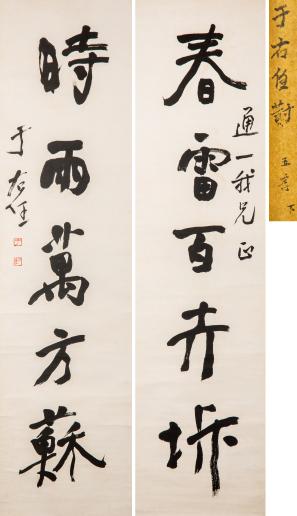 春雷百卉坼
通一我兄正
時雨萬方蘇
于右任
于右任對
五言